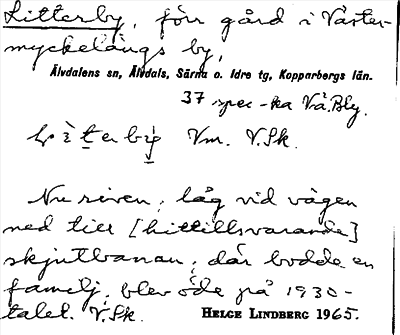 Litterby, förr gård i Väster-
myckelängs by,
Älvdalens sn, Älvdals, Särna o. Idre tg, Kopparbergs län.
37 spec-ka Vå. Bly.
Vm. V.Sk.
Nu riven; låg vid vägen
ned till [hittillsvarande]
skjutbanan; där bodde en
familj, blev öde på 1930-
talet. V.Sk.
HELGE LINDBERG 1965.